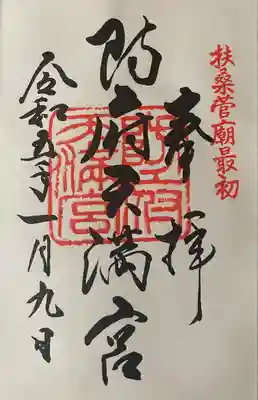 扶桑菅廟最初
奉拝
防府天満宮
令和五年一月九日